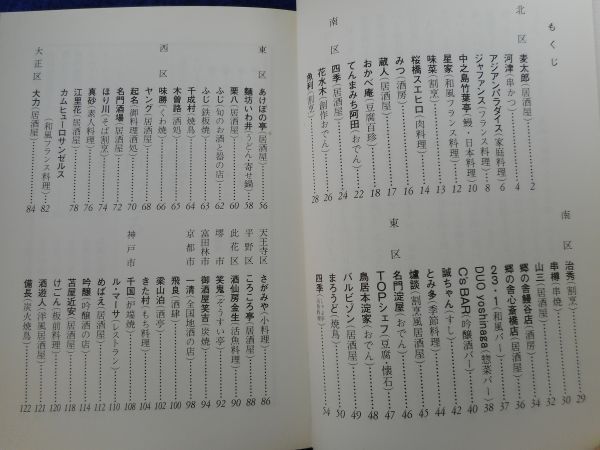 もくじ
北区
麦太郎(居酒屋)……2
河津(串かつ)……4
アジアンパラダイス(家庭料理)……6
ジャファンス(フランス料理)……8
中之島竹葉亭(鰻・日本料理)……10
星家(和風フランス料理)……12
味菜(割烹)……13
桜橋スエヒロ(肉料理)……14
みつ(酒房)……16
蔵人(居酒屋)……17
おかべ庵(豆腐百珍)……18
てんまみち阿田(おでん)……22
南区
四季(居酒屋)……24
花水木(創作おでん)……26
魚利(割烹)……28
南区
治秀(割烹)……29
串樽(串焼)……30
山三(居酒屋)……32
郷の舎鰻谷店(酒房)……34
郷の舎心斎橋店(居酒屋)……36
23・1(和風バー)……37
DUO yoshinaga(惣菜バー)……38
C's BAR(吟醸酒バー)……40
誠ちゃん(すし)……40
とみ多(季節料理)……42
爐談(割烹風居酒屋)……44
東区
名門淀屋(おでん)……46
TOPシェフ(豆腐・懐石)……47
鳥居本淀家(おでん)……48
バルビゾン(居酒屋)……49
まろうど(焼鳥)……50
四季……54
東区
あけぼの亭(居酒屋)……56
麺坊いわ井(うどん・寄せ鍋)……58
栗八(居酒屋)……60
ふじ(旬のお酒と器の店)……62
ふじ(鉄板焼)……64
千成村(焼鳥)……65
西区
木曽路(酒処)……66
味勝(くわ焼)……68
ヤング(居酒屋)……69
起名(御料理酒処)……70
名門酒場(居酒屋)……72
ほり川(そば割烹)……74
真砂(素人料理)……76
江里花(居酒屋)……77
カムヒューロサンゼルス
(和風フランス料理)……82
大正区
大力(居酒屋)……84
天王寺区
さがみや(小料理)……86
平野区
ころころ亭(居酒屋)……88
此花区
酒仙房金生(活魚料理)……90
堺市
笑鬼(ぞうすい亭)……92
富田林市
御酒屋笑吉(炭焼)……94
京都市
一清(全国地酒の店)……98
飛良(酒肆)……100
梁山泊(酒亭)……102
きた村(もち料理)……104
神戸市
千国(炉場焼)……108
ル・マーサ(レストラン)……110
めばえ(居酒屋)……112
吟醸(吟醸酒の店)……114
苫屋近安(居酒屋)……118
けごん(板前料理)……120
酒遊人(洋風居酒屋)……121
備長(炭火焼鳥)……122